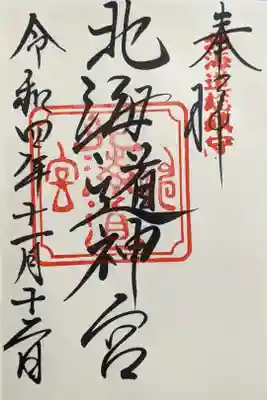 奉拝
北海道神宮
令和四年十一月十二日